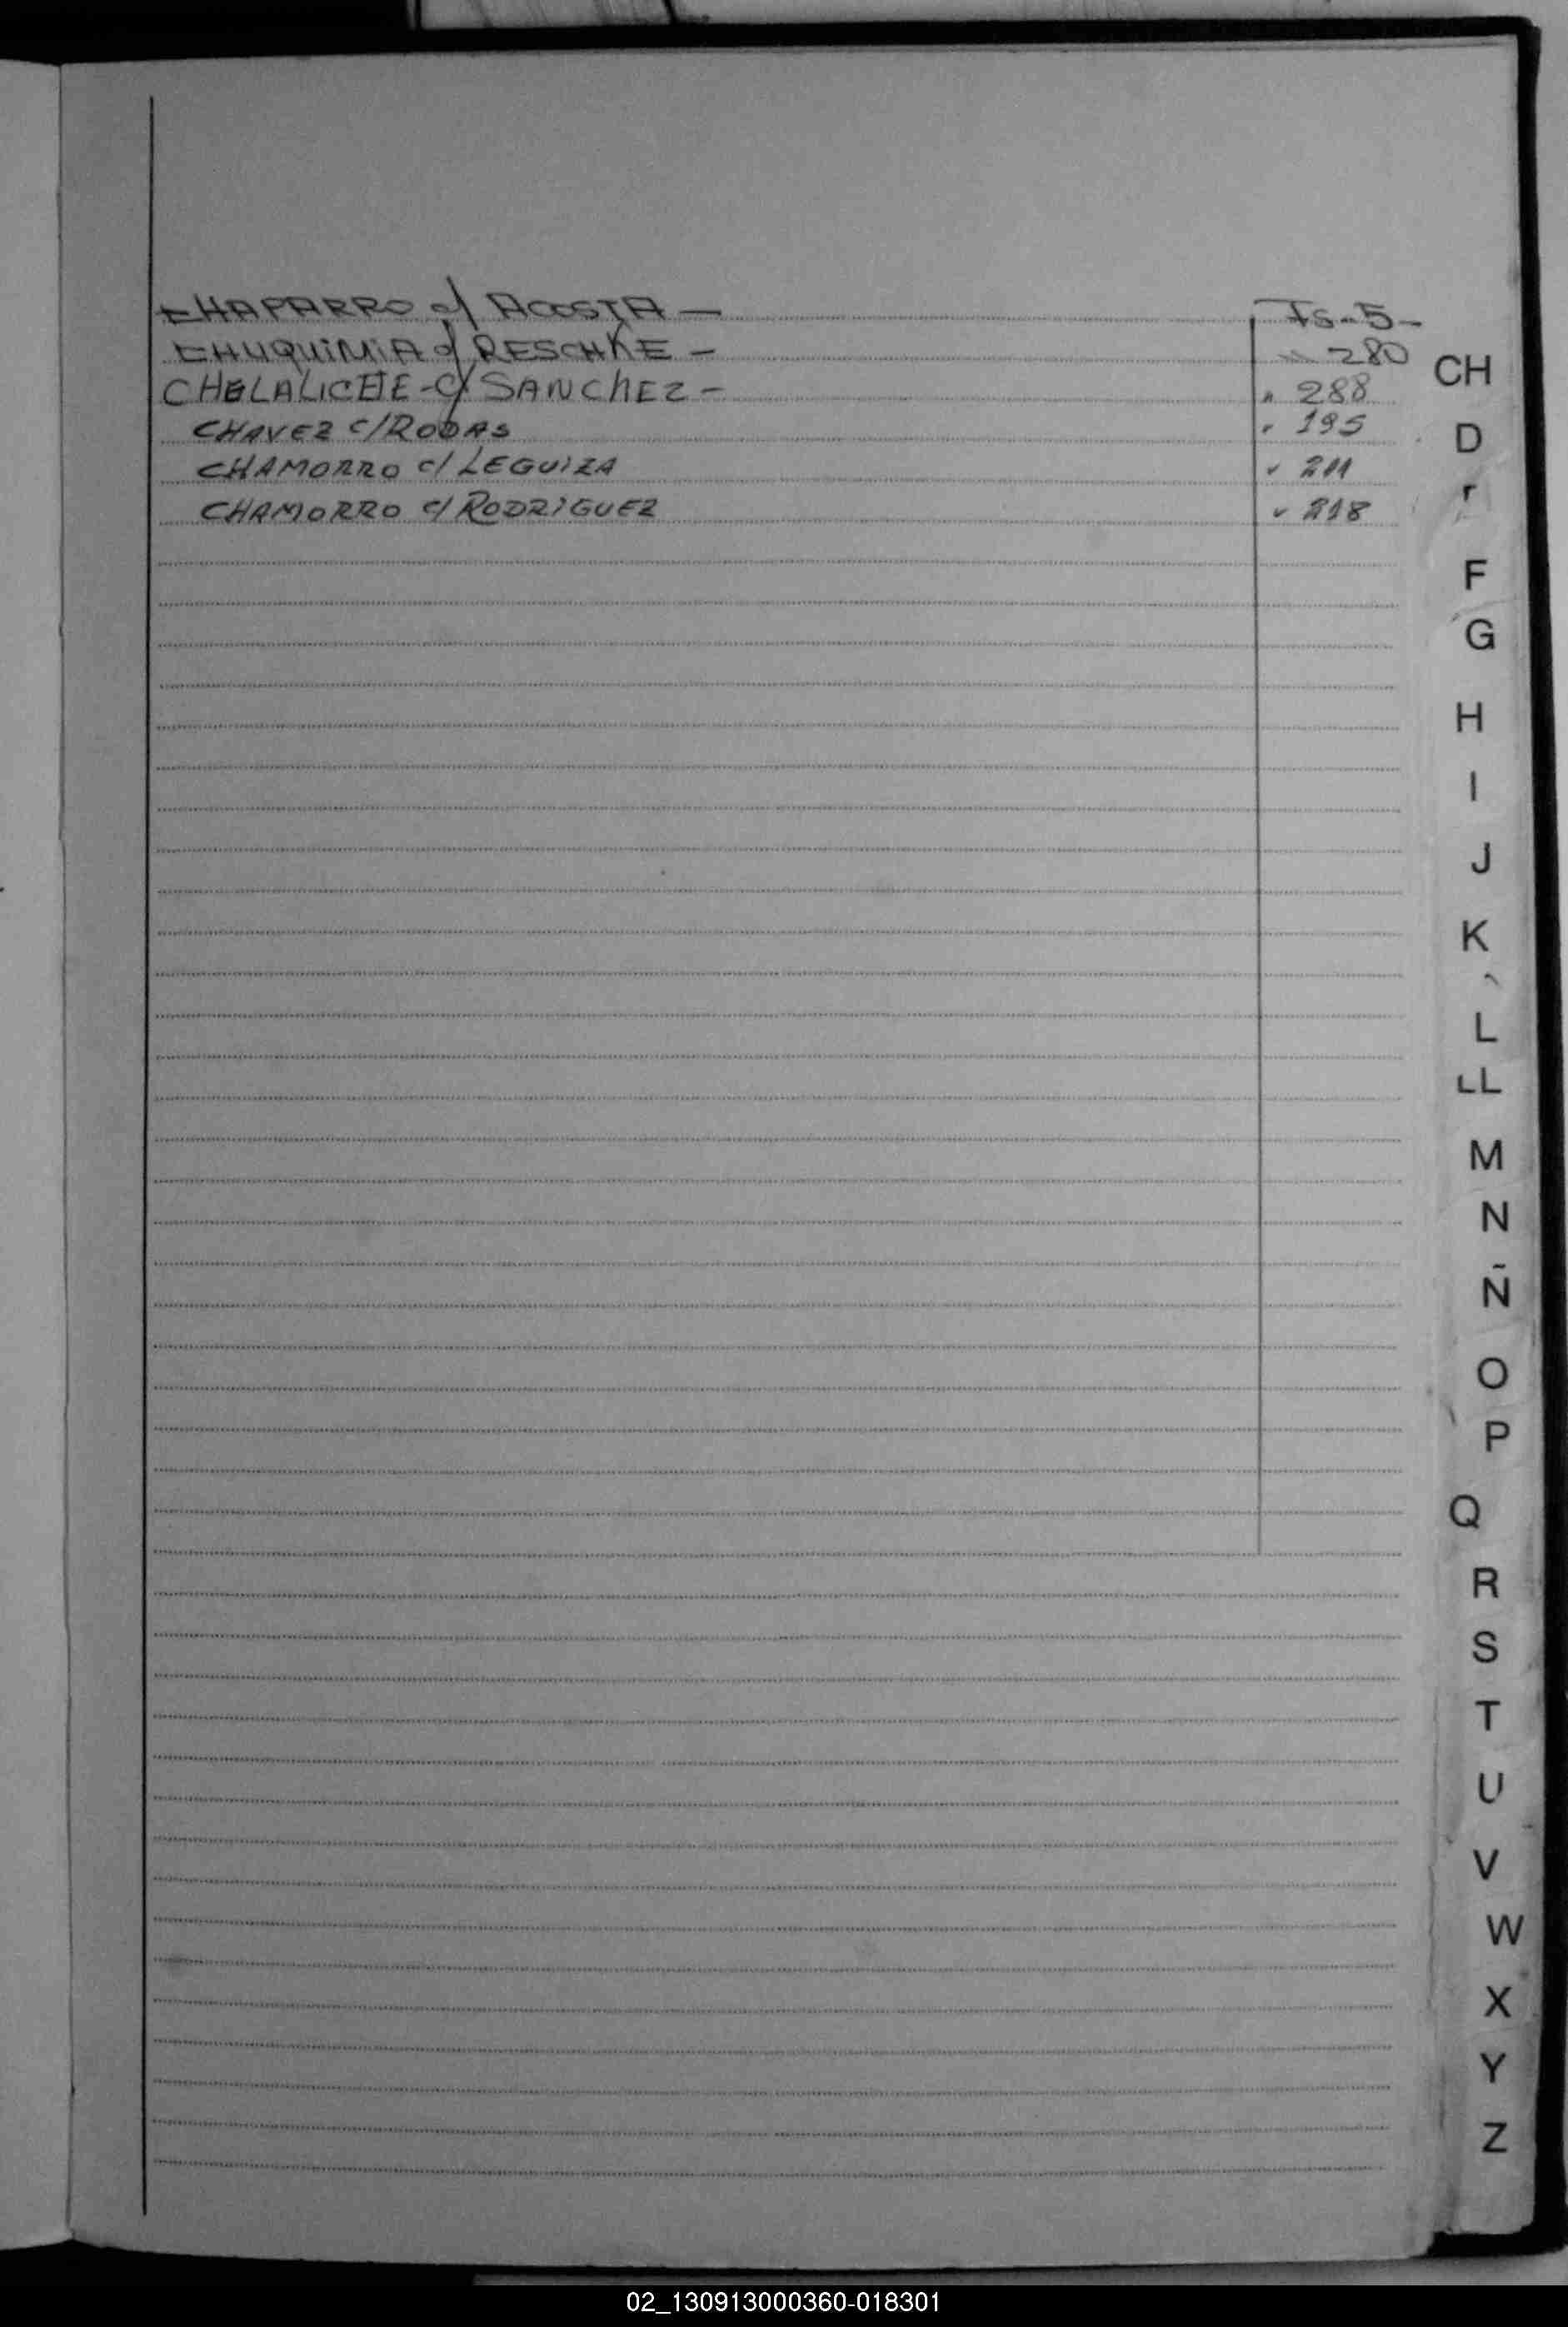 CHAPARRO c/ ACOSTA - Fs-5-
CHUQUIMIA c/ RESCHKE - " 280
CHELALICHE - c/ SANCHEZ - " 288
CHAVEZ c/ RODAS " 195
CHAMORRO c/ LEGUIZA " 211
CHAMORRO c/ RODRIGUEZ " 218
CH
D
F
G
H
I
J
K
L
LL
M
N
Ñ
O
P
Q
R
S
T
U
V
W
X
Y
Z
02_130913000360-018301